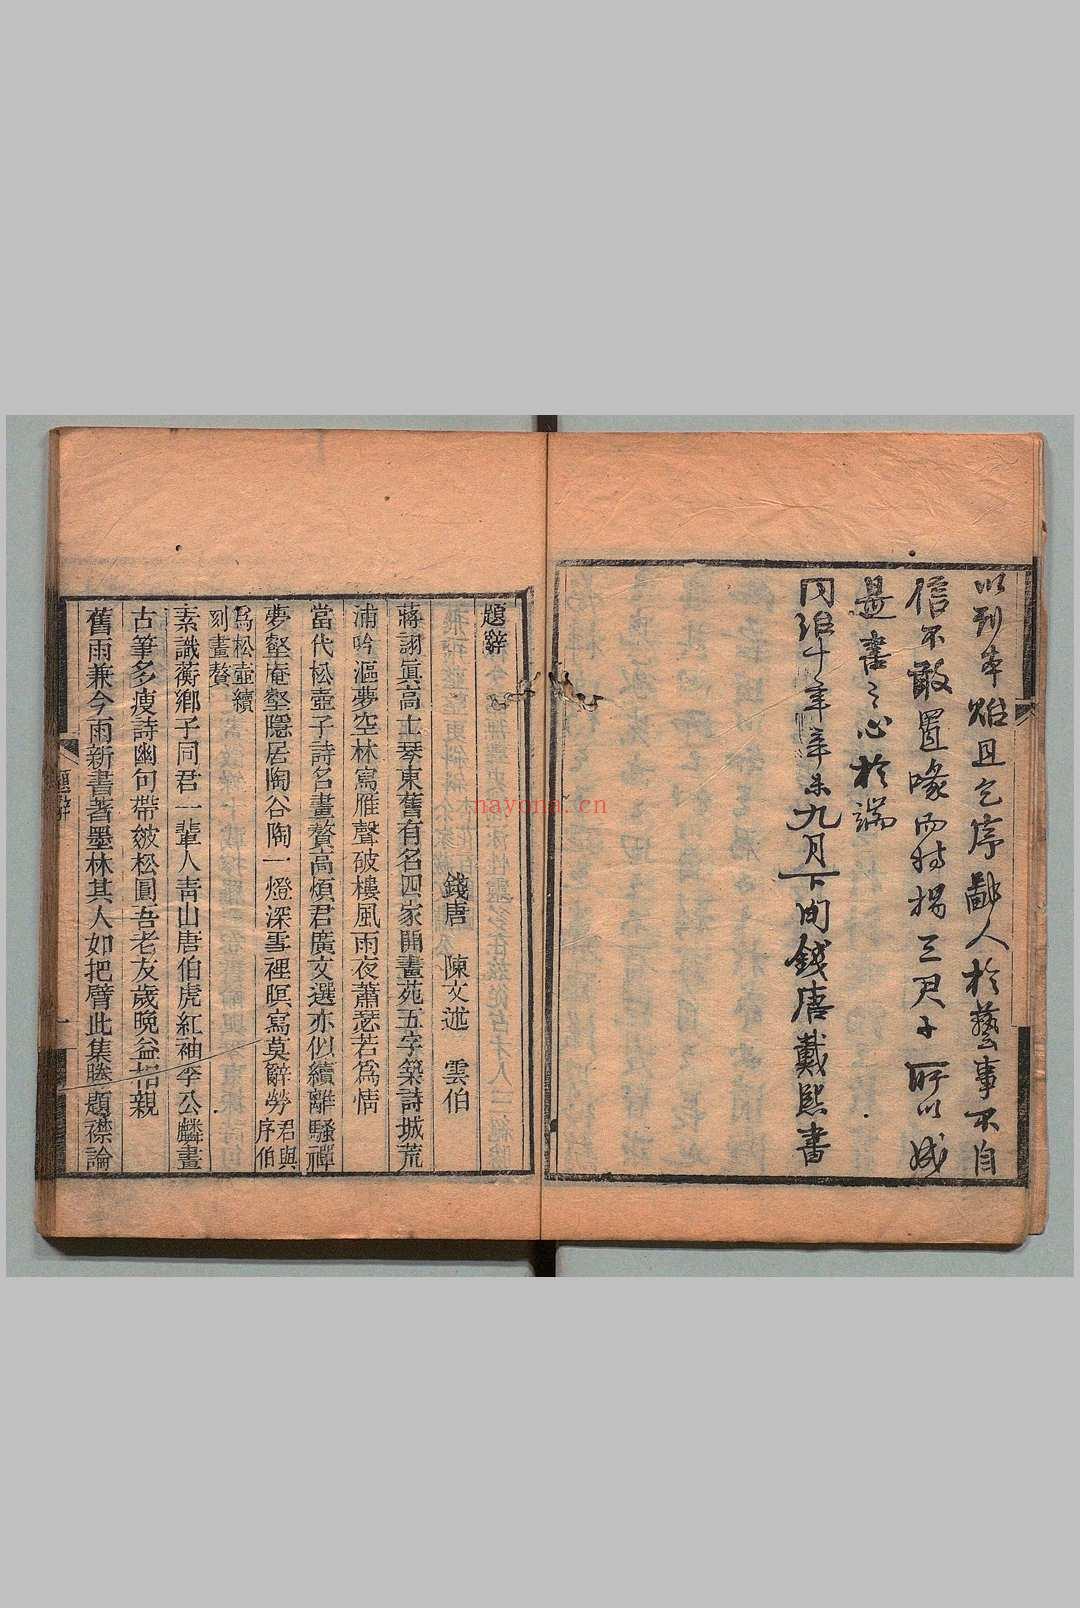 以刊本貽且乞序鄙人於藝事不自
信不敢置喙而特揭三君子所以
書之心於端
同治十年辛未九月下旬錢唐戴熙書
題辭
錢唐 陳文述 雲伯
蔣詡眞高士琴東舊有名四家開畫苑五字築詩城荒
浦吟漚夢空林寫雁聲破樓風雨夜蕭瑟若爲情
當代松壺子詩名畫贅高煩君廣文選亦似續離騷禪
夢壑庵壑隱居陶谷陶一燈深雪裡暝寫莫辭勞君與序伯
爲松壺續刻畫贅
素識蘅鄉子同君一輩人靑山唐伯虎紅袖李公麟畫
古筆多瘦詩幽句帶皴松圓吾老友歲晚益相親
舊雨兼今雨新書著墨林其人如把臂此集勝題襟論
題辭
一
nayona.cn